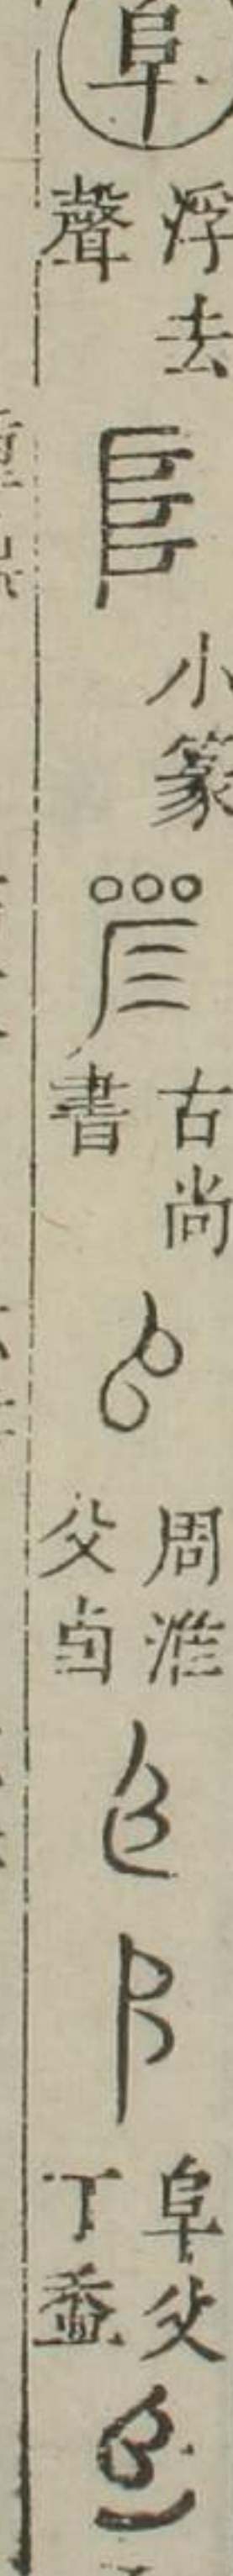 阜
浮去聲
小篆
古尚書
周淮父卣
阜父丁盉